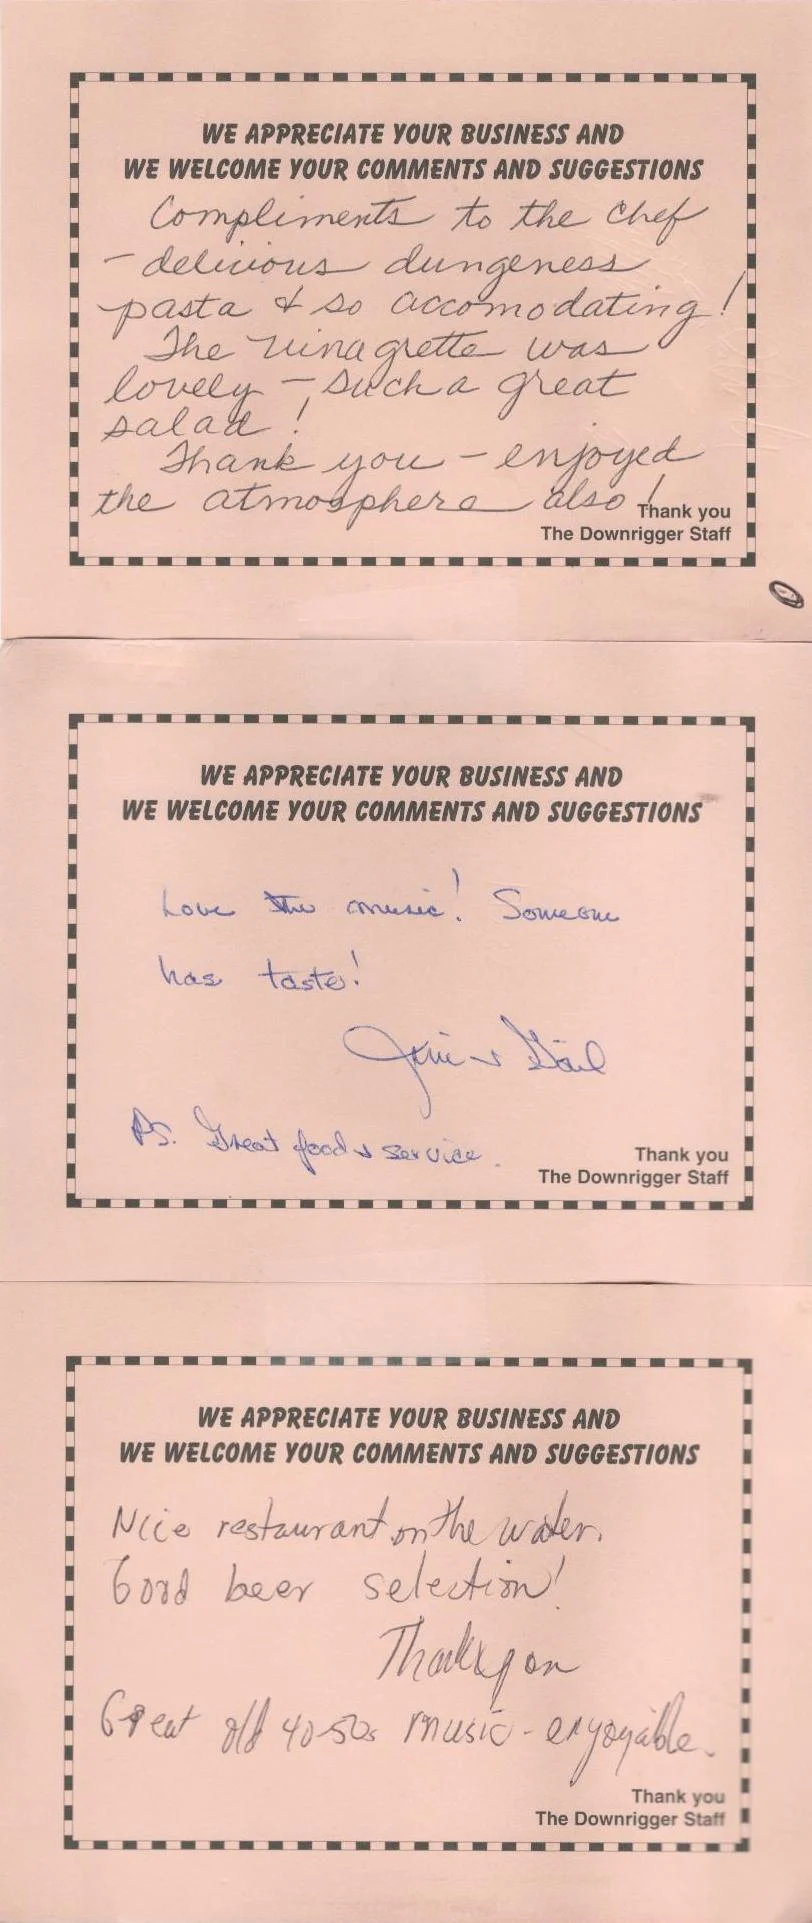 WE APPRECIATE YOUR BUSINESS AND
WE WELCOME YOUR COMMENTS AND SUGGESTIONS
Compliments to the chef
- delicious dungeness
pasta & so accomodating!
The vinagrette was
lovely - such a great
salad!
Thank you - enjoyed
the atmosphere also!
Thank you
The Downrigger Staff
WE APPRECIATE YOUR BUSINESS AND
WE WELCOME YOUR COMMENTS AND SUGGESTIONS
Love the music! Someone
has taste!
Jim & Gail
PS. Great food & service.
Thank you
The Downrigger Staff
WE APPRECIATE YOUR BUSINESS AND
WE WELCOME YOUR COMMENTS AND SUGGESTIONS
Nice restaurant on the water.
Good beer selection!
Thank you
Great old 40-50s music - enjoyable.
Thank you
The Downrigger Staff